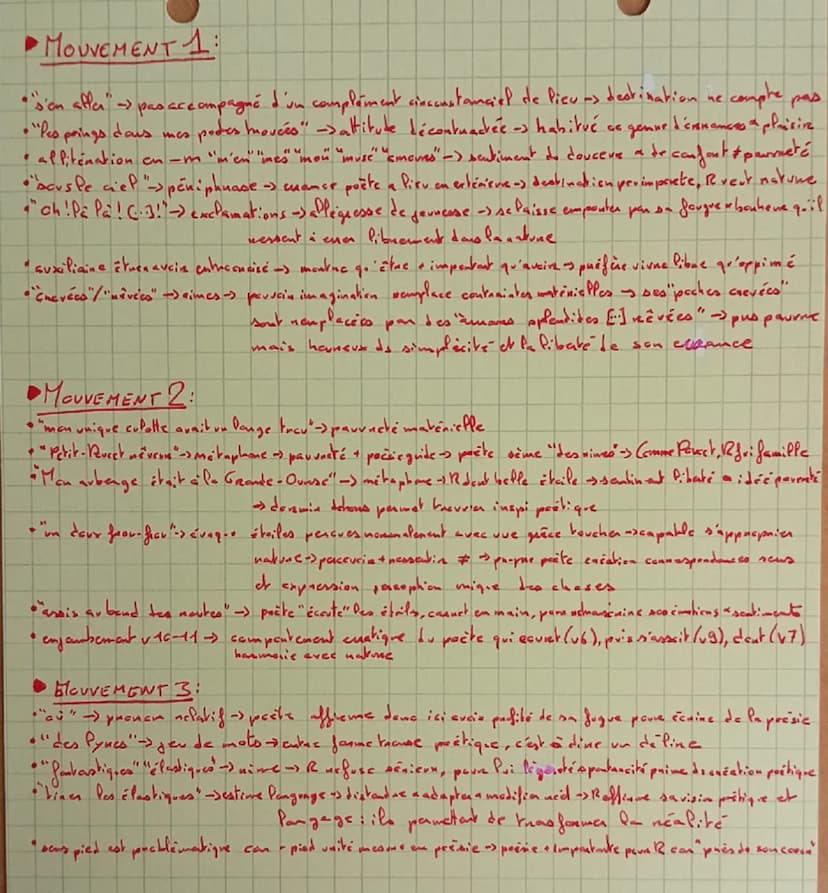 ▶ MOUVEMENT 1 :
• "s'en aller" → pas accompagné d'un complément circonstanciel de lieu → destination ne compte pas
• "les poings dans mes poches trouées" → attitude décontractée → habitué ce genre d'errances + plaisir
• allitération en -m "m'en" "mes" "mon" "muse" "amours" → sentiment de douceur & de confort ≠ pauvreté
• "sous le ciel" → périphrase → errance poète a lieu en extérieur → destination peu importe, R veut nature
• "Oh ! là là ! (...) !" → exclamations → allégresse de jeunesse → se laisse emporter par sa fougue + bonheur qu'il
ressent à errer librement dans la nature
• auxiliaire être avoir → montre qu'être + important qu'avoir → préfère vivre libre qu'opprimé
• "crevées"/"rêvées" → rimes → pouvoir imagination remplace contraintes matérielles → ses "poches crevées"
sont remplacées par des "amours splendides [...] rêvées" → pauvre
mais heureux de simplicité et la liberté de son errance
▶ MOUVEMENT 2 :
• "mon unique culotte avait un large trou" → pauvreté matérielle
• "Petit-Poucet rêveur" → métaphore → pauvreté + poésie guide → poète sème "des rimes" → Comme Poucet, R fui famille
• "Mon auberge était à la Grande-Ourse" → métaphore → R dort belle étoile → sentiment liberté
→ dormir dehors permet trouver inspi poétique
• "un doux frou-frou" → évoque étoiles perçues normalement avec vue grâce toucher → capable s'approprier
nature → percevoir + ressentir ≠ → propre poète création correspondances sens
et expression perception unique des choses
• "assis au bord des routes" → poète "écoute" les étoiles, carnet en main, pour retranscrire ses émotions + sentiments
• enjambement v10-11 → comportement erratique du poète qui (v6), puis s'assoit (v9), dort (v7)
harmonie avec nature
▶ MOUVEMENT 3 :
• "où" → pronom relatif → poète affirme donc ici avoir profité de sa fugue pour écrire de la poésie
• "des lyres" → jeu de mots → entre forme poétique, c'est à dire un délire
• "fantastiques" "élastiques" → rime → R refuse sérieux, pour lui légèreté spontanéité prime de création poétique
• "tirer les élastiques" → étirer langage → distordre adapter modifier → R affirme sa vision poétique et
langage : ils permettent de transformer la réalité
• "sous pied est problématique car - pied unité mesure en poésie → poésie + importante pour R car "près de son coeur"